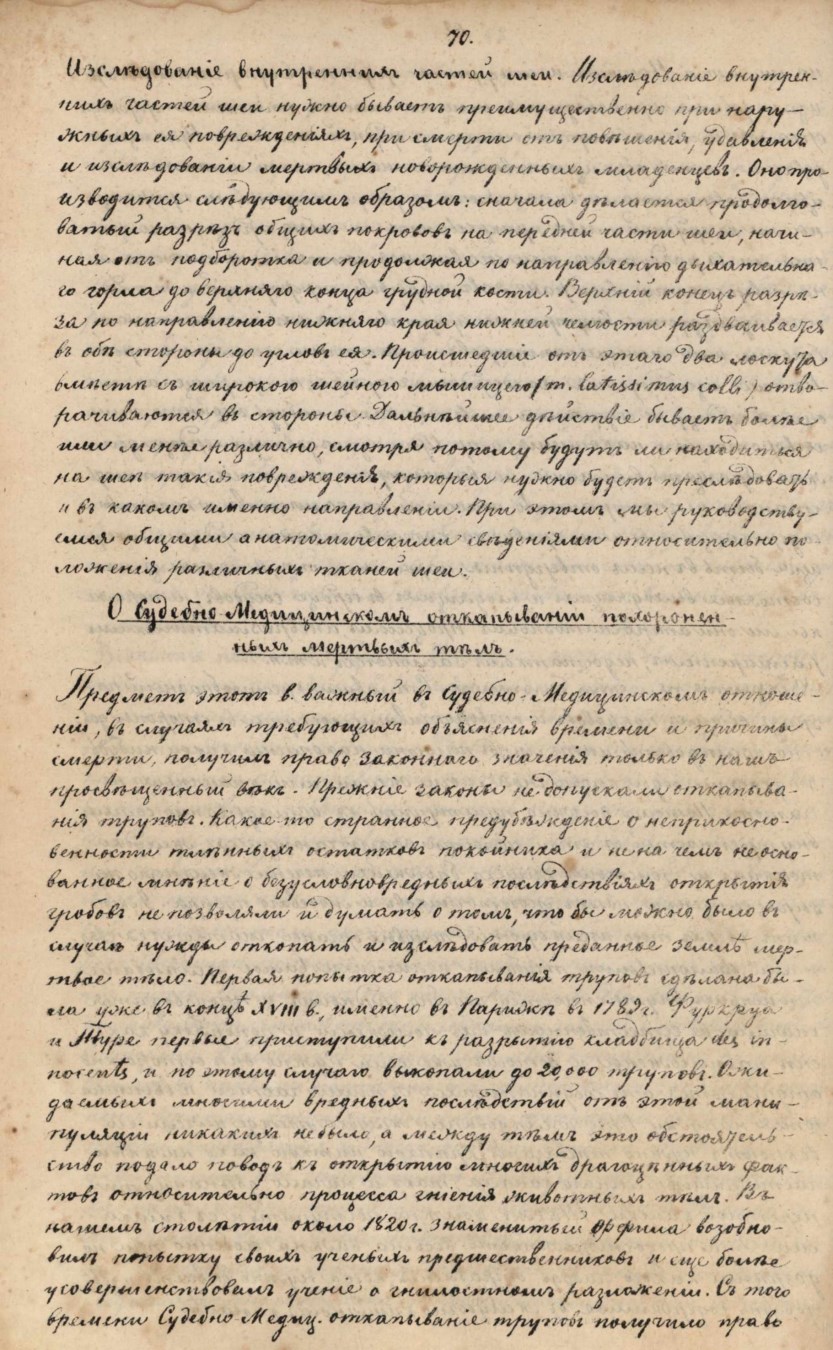 70.
Изслѣдованіе внутреннихъ частей шеи. Изслѣдованіе внутрен-
нихъ частей шеи нужно бываетъ преимущественно при нару-
жныхъ ея поврежденіяхъ, при смерти отъ повѣшенія, удавленія
и изслѣдованіи мертвыхъ новорожденныхъ младенцевъ. Оно про-
изводится слѣдующимъ образомъ: сначала дѣлается продолго-
ватый разрѣзъ общихъ покрововъ на передней части шеи, начи-
ная отъ подборотка и продолжая по направленію дыхательна-
го горла до верхняго конца грудной кости. Верхній конецъ разрѣ-
за по направленію нижняго края нижней челюсти раздваивается
въ обѣ стороны до угловъ ея. Происшедшіе отъ этаго два лоскута
вмѣстѣ съ широкою шейною мышицею (m. latissimus colli) отво-
рачиваются въ стороны. Дальнѣйшее дѣйствіе бываетъ болѣе
или менѣе различно, смотря потому будутъ ли находиться
на шеѣ такія поврежденія, которыя нужно будетъ преслѣдовать
и въ какомъ именно направленіи. При этомъ мы руководству-
емся общими анатомическими свѣденіями относительно по-
ложенія различныхъ тканей шеи.
О Судебно-Медицинскомъ откапываніи похоронен-
ныхъ мертвыхъ тѣлъ.
Предметъ этотъ в. важный въ Судебно-Медицинскомъ отноше-
ніи, въ случаяхъ требующихъ объясненія времени и причины
смерти, получилъ право законнаго значенія только въ нашъ
просвѣщенный вѣкъ. Прежніе законы не допускали откапыва-
нія труповъ. Какое-то странное предубѣжденіе о неприкосно-
венности тлѣнныхъ остатковъ покойника и не на чемъ не осно-
ванное мнѣніе о безусловновредныхъ послѣдствіяхъ открытія
гробовъ не позволяли и думать о томъ, что бы можно было въ
случаѣ нужды откопать и изслѣдовать преданное землѣ мер-
твое тѣло. Первая попытка откапыванія труповъ сдѣлана бы-
ла уже въ концѣ XVIII в., именно въ Парижѣ въ 1789 г. Фуркруа
и Туре первые приступили къ разрытію кладбища des in-
nocents, и по этому случаю выкопали до 20,000 труповъ. Ожи-
даемыхъ многими вредныхъ послѣдствій отъ этой мани-
пуляціи никакихъ не было, а между тѣмъ это обстоятель-
ство подало поводъ къ открытію многихъ драгоцѣнныхъ фак-
товъ относительно процесса гніенія животныхъ тѣлъ. Въ
нашемъ столѣтіи около 1820 г. знаменитый Орфила возобно-
вилъ попытку своихъ ученыхъ предшественниковъ и еще болѣе
усовершенствовалъ ученіе о гнилостномъ разложеніи. Съ того
времени Судебно Медиц. откапываніе труповъ получило право